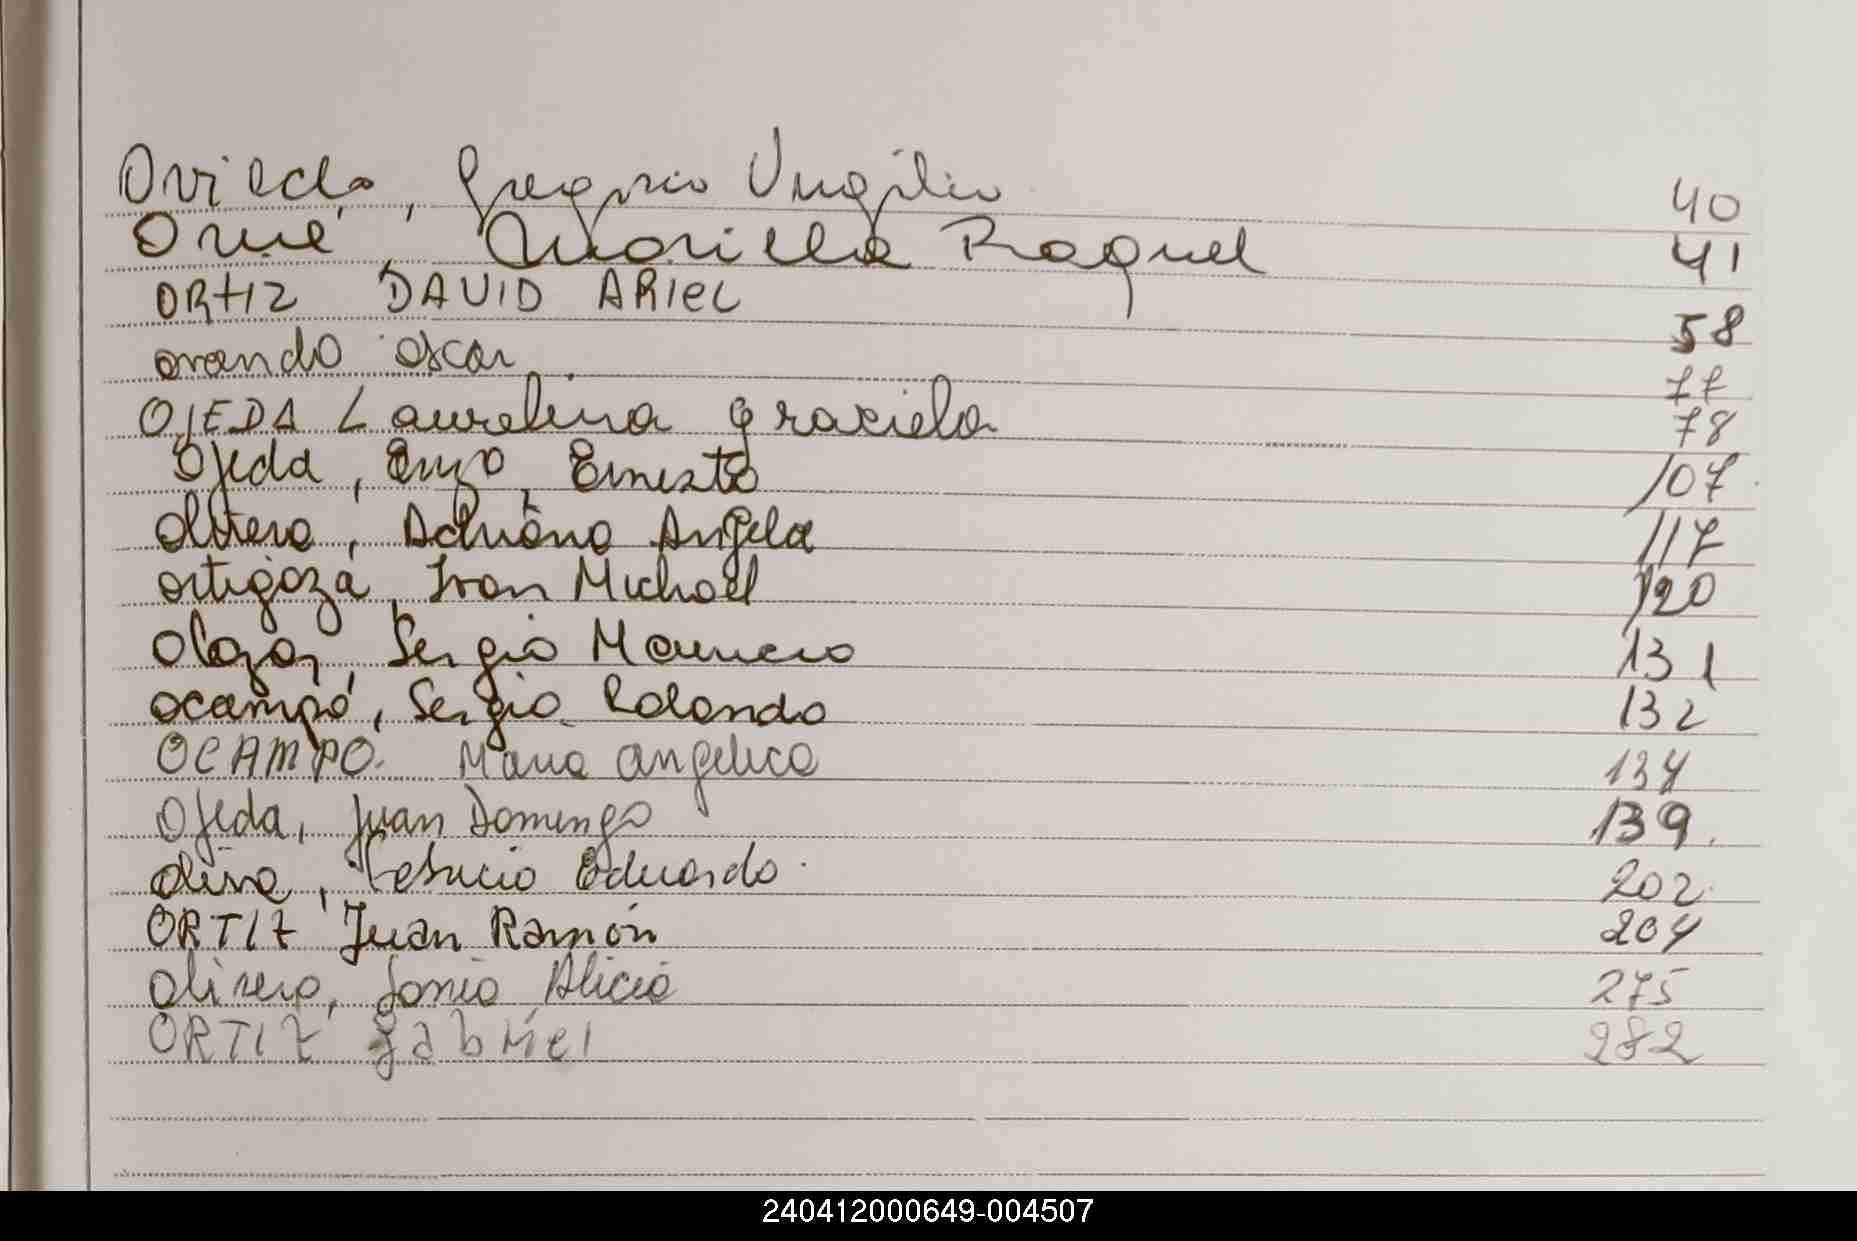 Oviedo, Gregorio Virgilio 40
Orué, Marilla Raquel 41
ORTIZ DAVID ARIEL 58
ovando oscar 77
OJEDA Laurelina graciela 78
Ojeda, Enzo Ernesto 107
Olivera, Adriana Angela 117
ortigoza, Ivan Michael 120
Olazar, Sergio Mauricio 131
ocampo, Sergio Rolando 132
OCAMPO. Maria angelica 134
Ojeda, Juan Domingo 139.
oliva, Eduardo 202
ORTIZ Juan Ramón 204
olivera, Sonia Alicia 275
ORTIZ gabriel 282
240412000649-004507